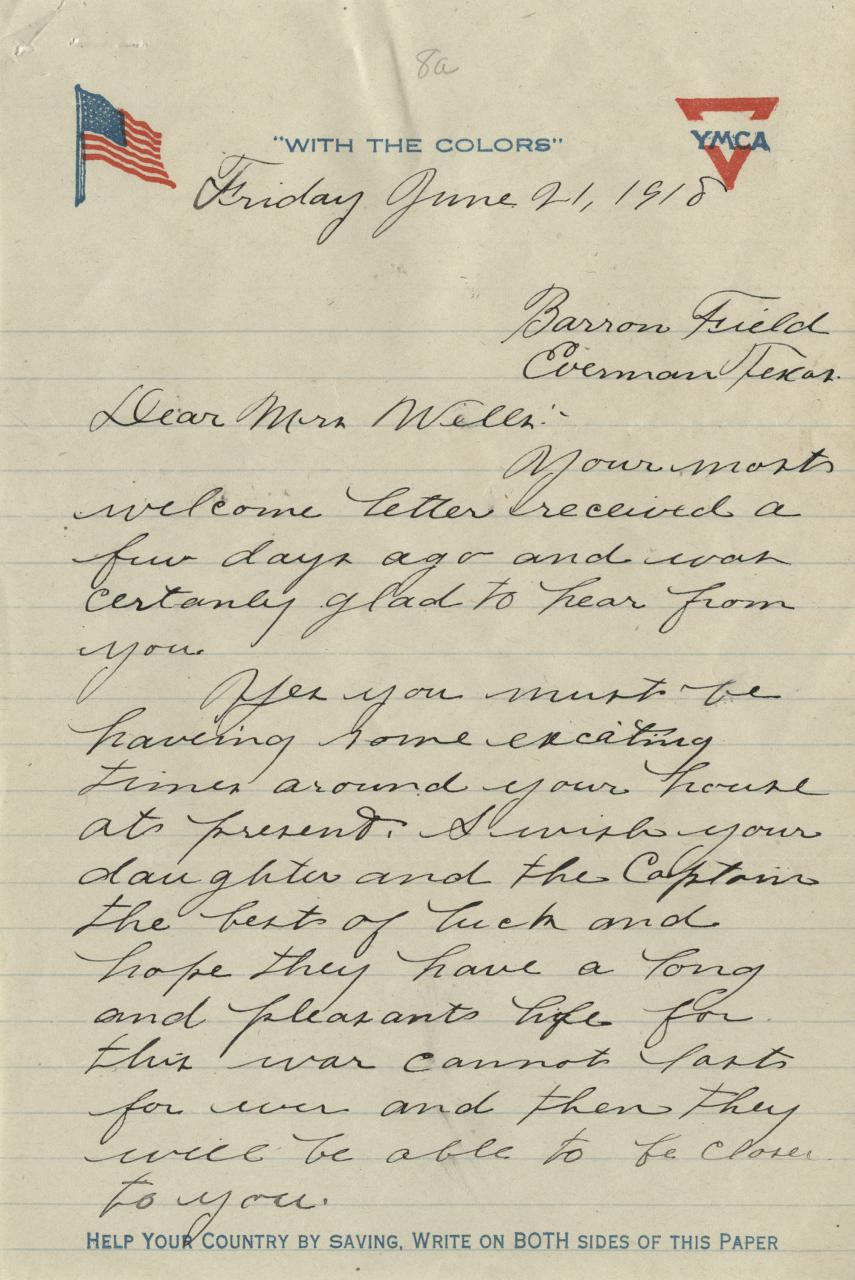 8a
"WITH THE COLORS"
YMCA
Friday June 21, 1918
Barron Field
Everman Texas.
Dear Mrs Wells:-
Your most
welcome letter received a
few days ago and was
certanly glad to hear from
you.
Yes you must be
haveing some excating
times around your house
at present. I wish your
daughter and the Captain
the best of luck and
hope they have a long
and pleasant life for
this war cannot last
for ever and then they
will be able to be closer
to you.
HELP YOUR COUNTRY BY SAVING, WRITE ON BOTH SIDES OF THIS PAPER